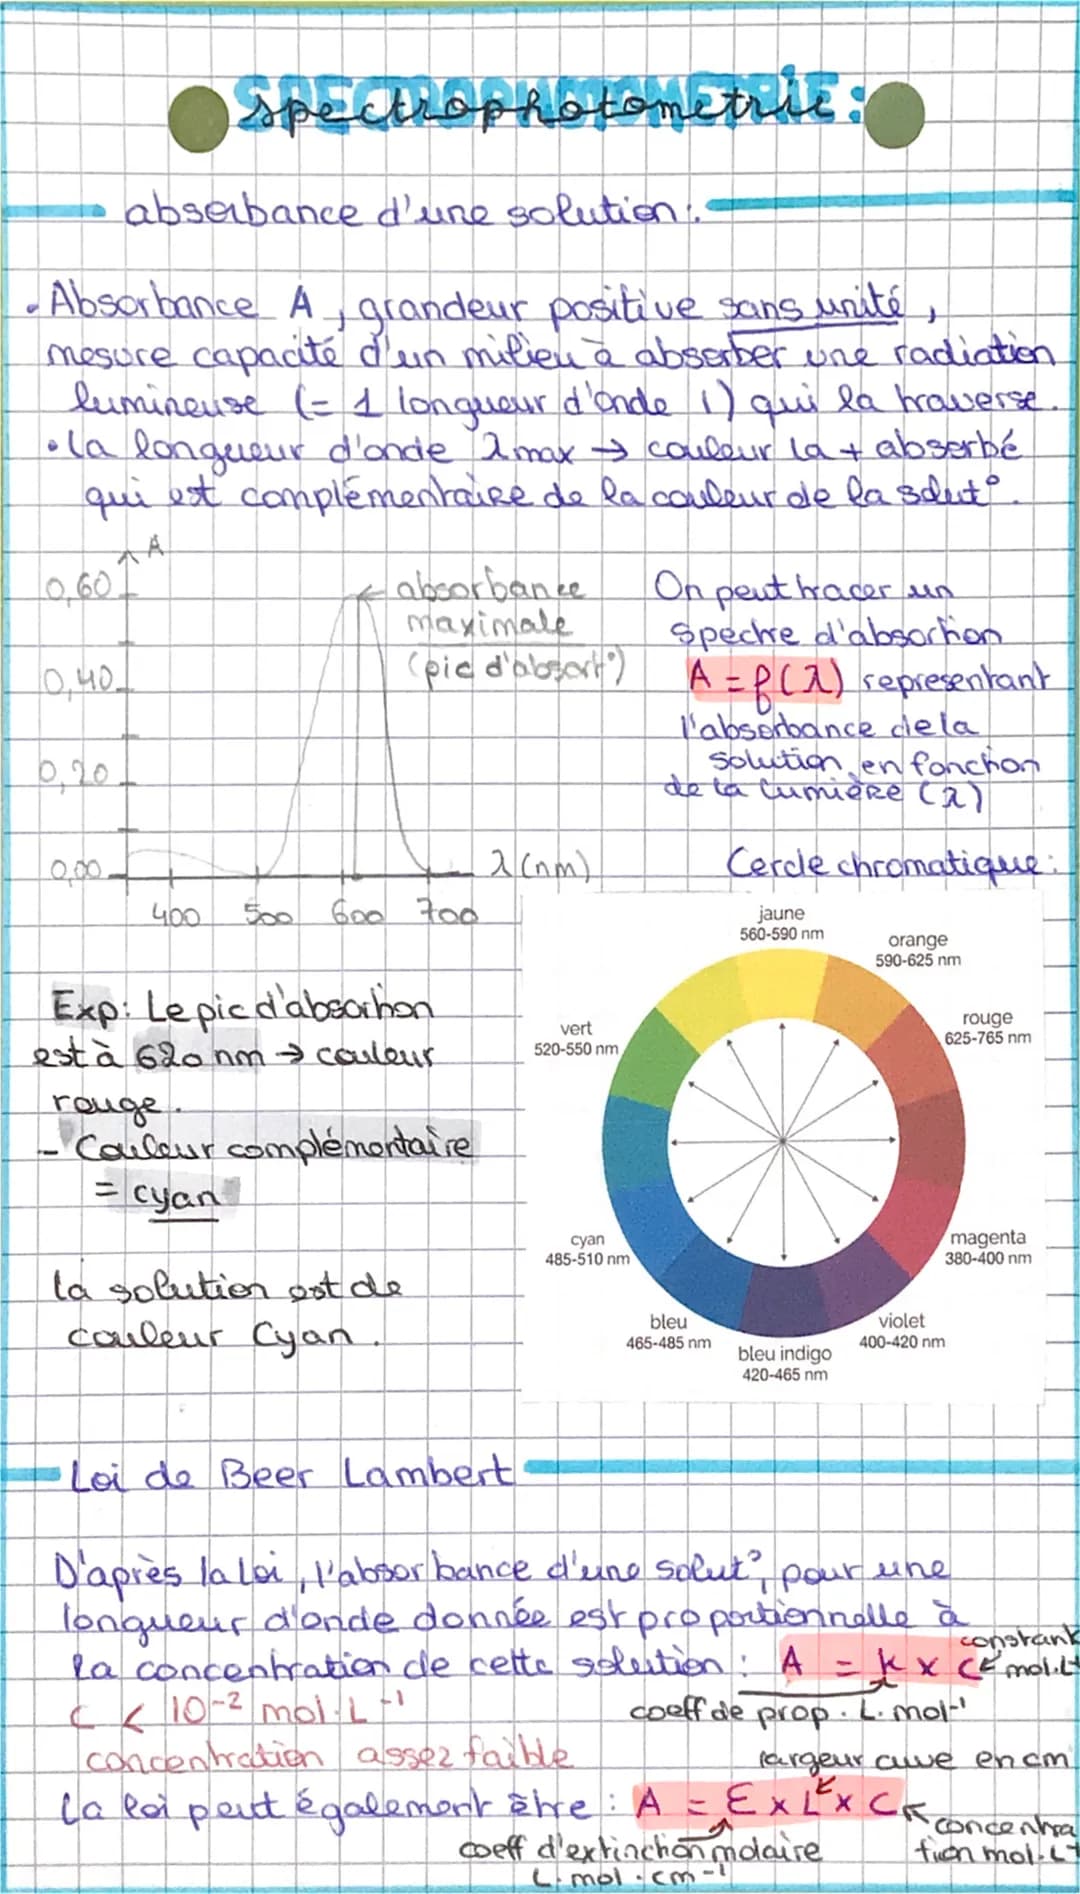 spectrophotometrie:
absorbance d'une solution:
• Absorbance A, grandeur positive sans unité,
mesure capacité d'un milieu à absorber une radiation
lumineuse (= 1 longueur d'onde !) qui la traverse.
• la longueur d'onde λmax → couleur la + absorbé
qui est complémentaire de la couleur de la solut°.
A
0,60
0,40
0,20
0,00
400 500 600 700
λ (nm)
absorbance
maximale
(pic d'absort°)
On peut tracer un
spectre d'absortion
A = f(λ) representant
l'absorbance de la
solution en fonction
de la lumière (λ)
Cercle chromatique:
jaune
560-590 nm
orange
590-625 nm
rouge
625-765 nm
magenta
380-400 nm
violet
400-420 nm
bleu indigo
420-465 nm
bleu
465-485 nm
cyan
485-510 nm
vert
520-550 nm
Exp: Le pic d'absortion
est à 620 nm → couleur
rouge.
- Couleur complémentaire
= cyan
la solution est de
couleur Cyan.
Loi de Beer Lambert
D'après la loi, l'absorbance d'une solut°, pour une
longueur d'onde donnée est proportionnelle à
la concentration de cette solution : A = k x C
constant
mol.L
C < 10-² mol.L-¹
coeff de prop. L.mol-¹
concentration assez faible
largeur cuve en cm
la loi peut également être : A = Ɛ x L x C
concentra
tion mol.L-
coeff d'extinction molaire
L.mol.cm-¹